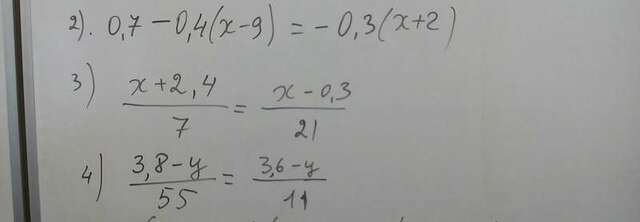 2). 0,7 - 0,4(x-9) = - 0,3(x+2)
3) (x+2,4)/7 = (x-0,3)/21
4) (3,8-y)/55 = (3,6-y)/11